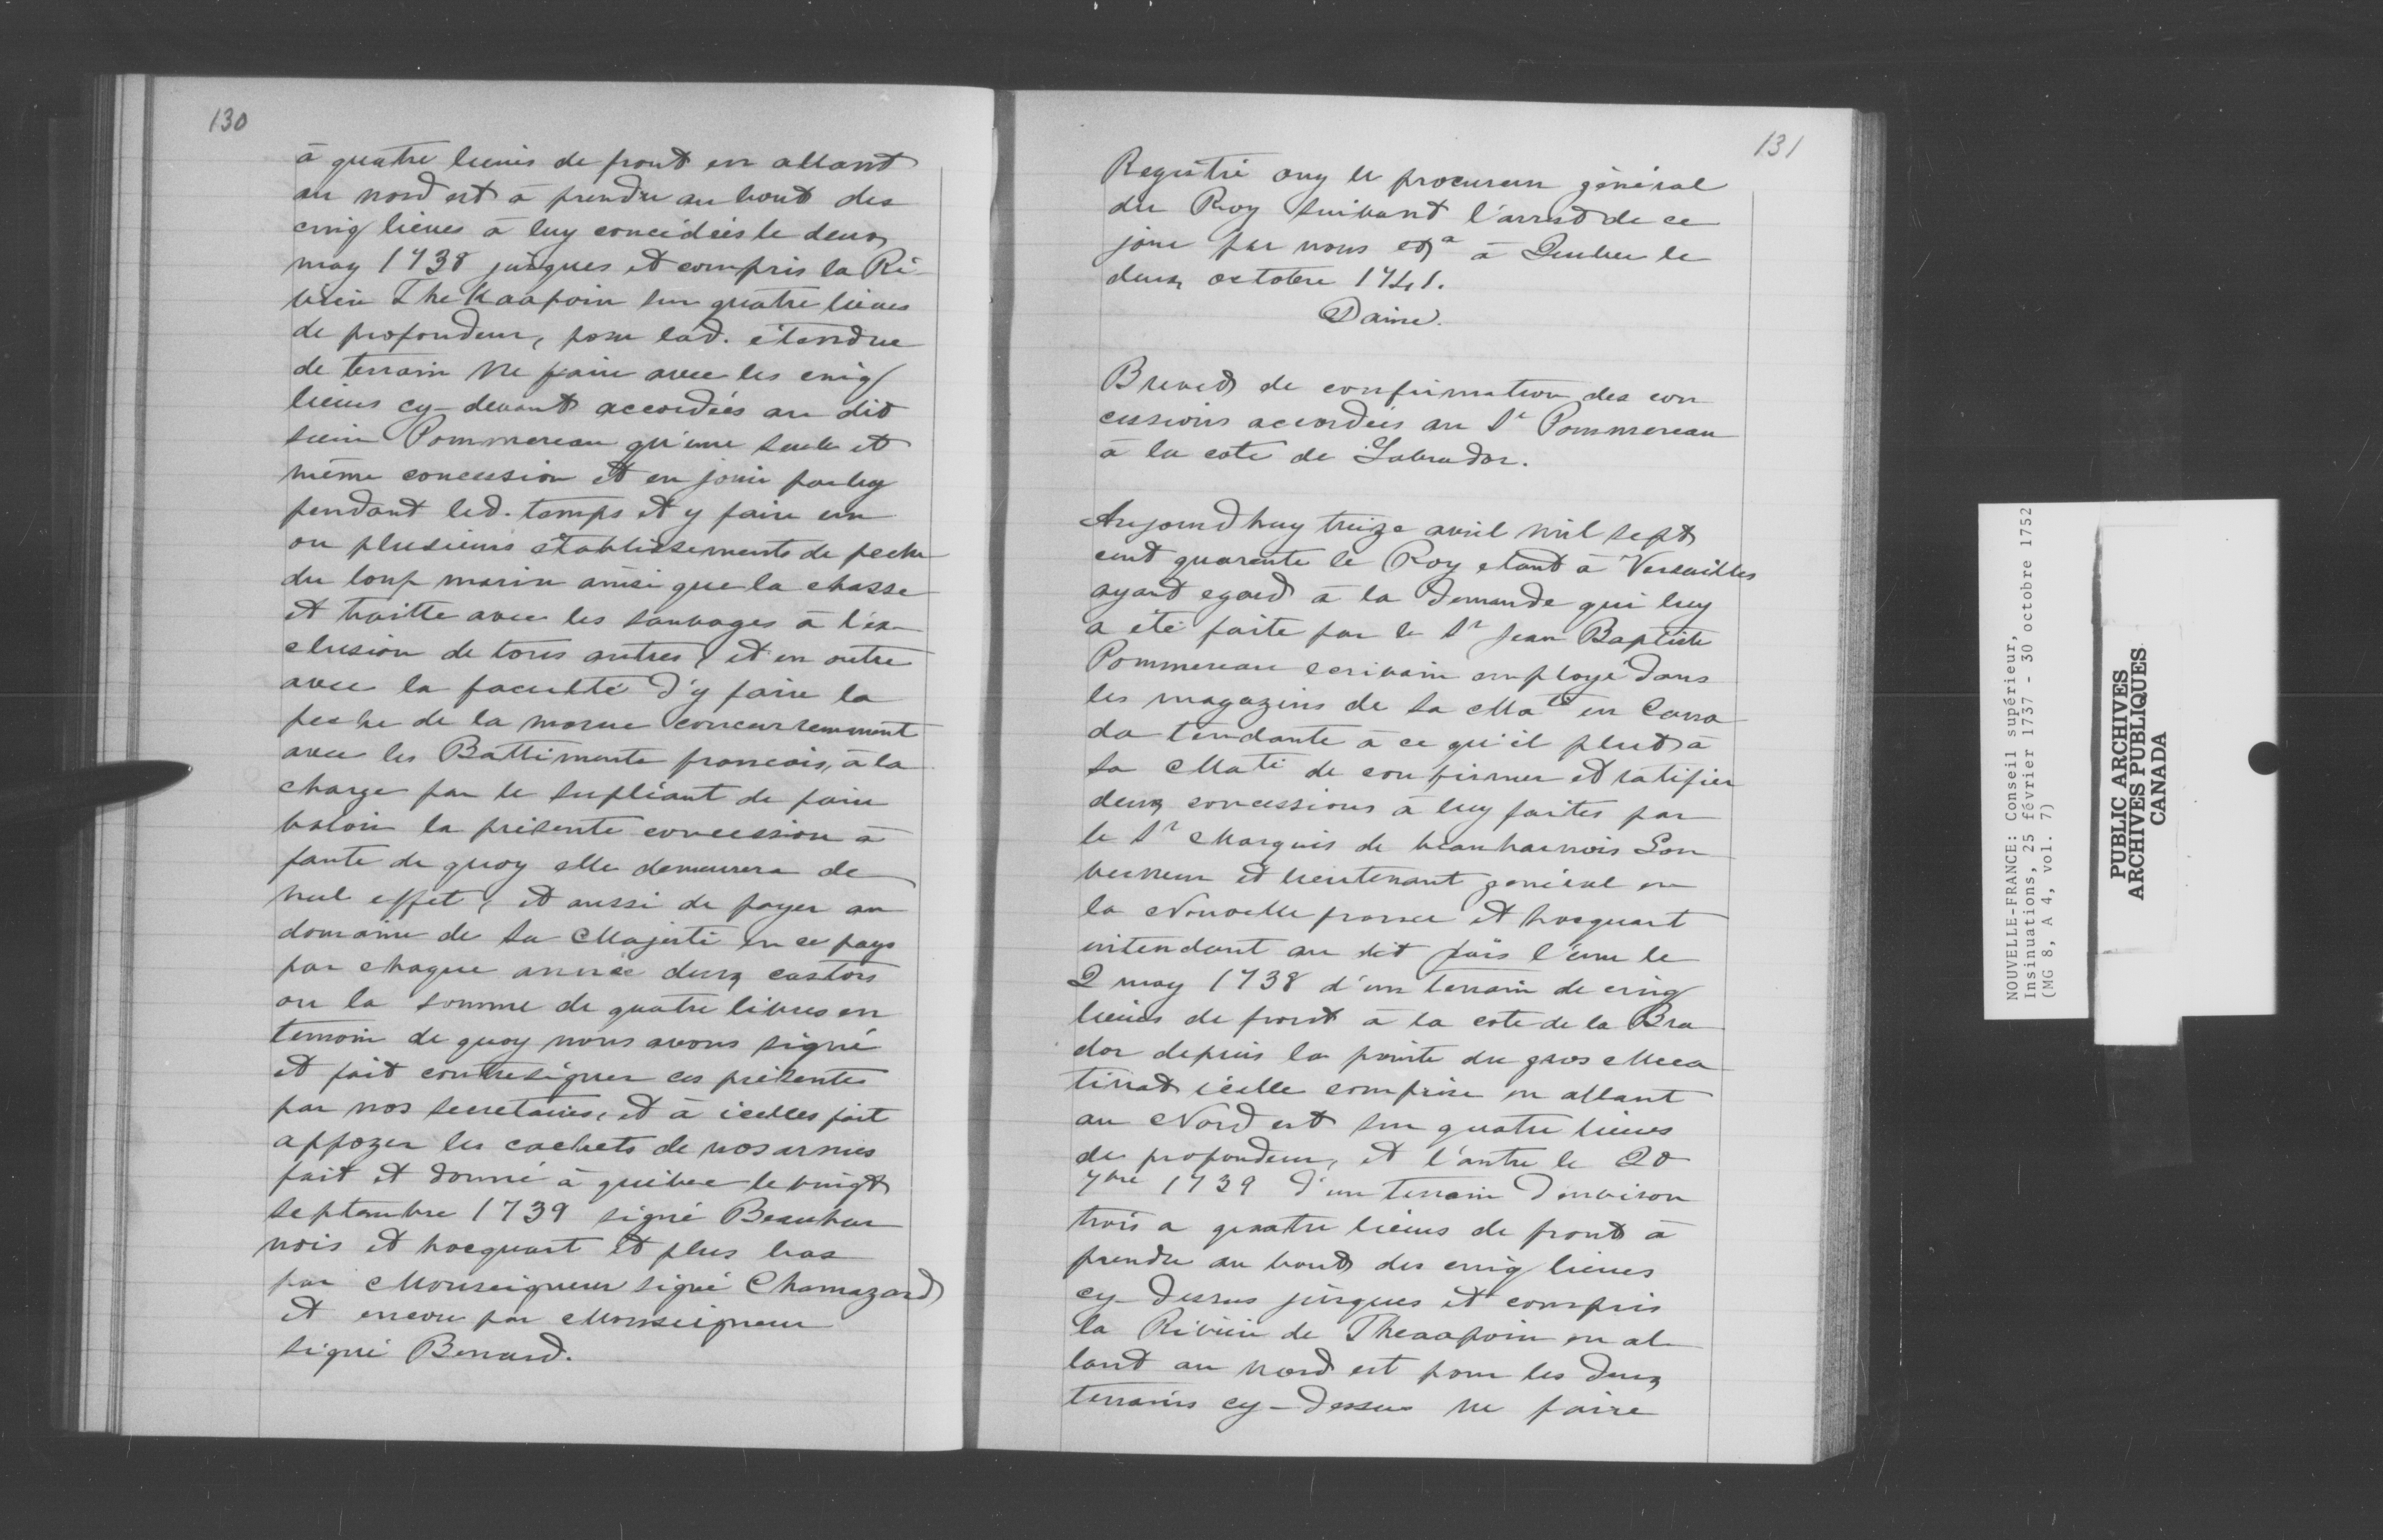 130
à quatre lieues de front en allant
au nord est à prendre au bout des
cinq lieues à luy concédées le deux
may 1738 jusques et compris la Ri-
viere Thekaapoin sur quatre lieues
de profondeur, pour lad. étendue
de terrain ne faire avec les cinq
lieues cy-devant accordées au dit
sieur Pommereau qu'une seule et
même concession et en jouir par luy
pendant led. temps et y faire un
ou plusieurs établissements de peche
du loup marin ainsi que la chasse
et traitte avec les sauvages à l'ex-
clusion de tous autres, et en outre
avec la faculté d'y faire la
peche de la morue concurremment
avec les Battiments francois, à la
charge par le supliant de faire
valoir la présente concession à
faute de quoy elle demeurera de
nul effet, et aussi de payer au
domaine de Sa Majesté en ce pays
par chaque année deux castors
ou la somme de quatre livres en
temoin de quoy nous avons signé
et fait contresigner ces présentes
par nos secretaires, et à icelles fait
appozer les cachets de nos armes
fait et donné à quebec le vingt
septembre 1739 signé Beauhar
nois et hocquart et plus bas
par Monseigneur signé Chamazard
et encore par Monseigneur
signé Benard.
131
Registré ouy le procureur général
du Roy suivant l'arrest de ce
jour par nous etca à Quebec le
deux octobre 1741.
Daine.
Brevet de confirmation des con
cessions accordées au Sr Pommereau
à la cote de Labrador.
Aujourdhuy treize avril mil sept
cent quarante le Roy etant à Versailles
ayant egard à la demande qui luy
a été faite par le Sr Jean Baptiste
Pommereau ecrivain employé dans
les magazins de Sa Mate en Cana
da tendante à ce qu'il plut à
Sa Mate de confirmer et ratifier
deux concessions à luy faites par
le Sr Marquis de beauharnois Gou
verneur et lieutenant général en
la Nouvelle france et hocquart
intendant au dit païs l'une le
2 may 1738 d'un terrain de cinq
lieues de front à la cote de la Bra
dor depuis la pointe du gros Meca
tinat icelle comprise en allant
au Nord est sur quatre lieues
de profondeur, et l'autre le 20
7bre 1739 d'un terrain d'environ
trois a quatre lieues de front à
prendre au bout des cinq lieues
cy-dessus jusques et compris
la Riviere de Theaapoin en al
lant au nord est pour les deux
terrains cy-dessus ne faire
NOUVELLE-FRANCE: Conseil supérieur,
Insinuations, 25 février 1737 - 30 octobre 1752
(MG 8, A 4, vol. 7)
PUBLIC ARCHIVES
ARCHIVES PUBLIQUES
CANADA